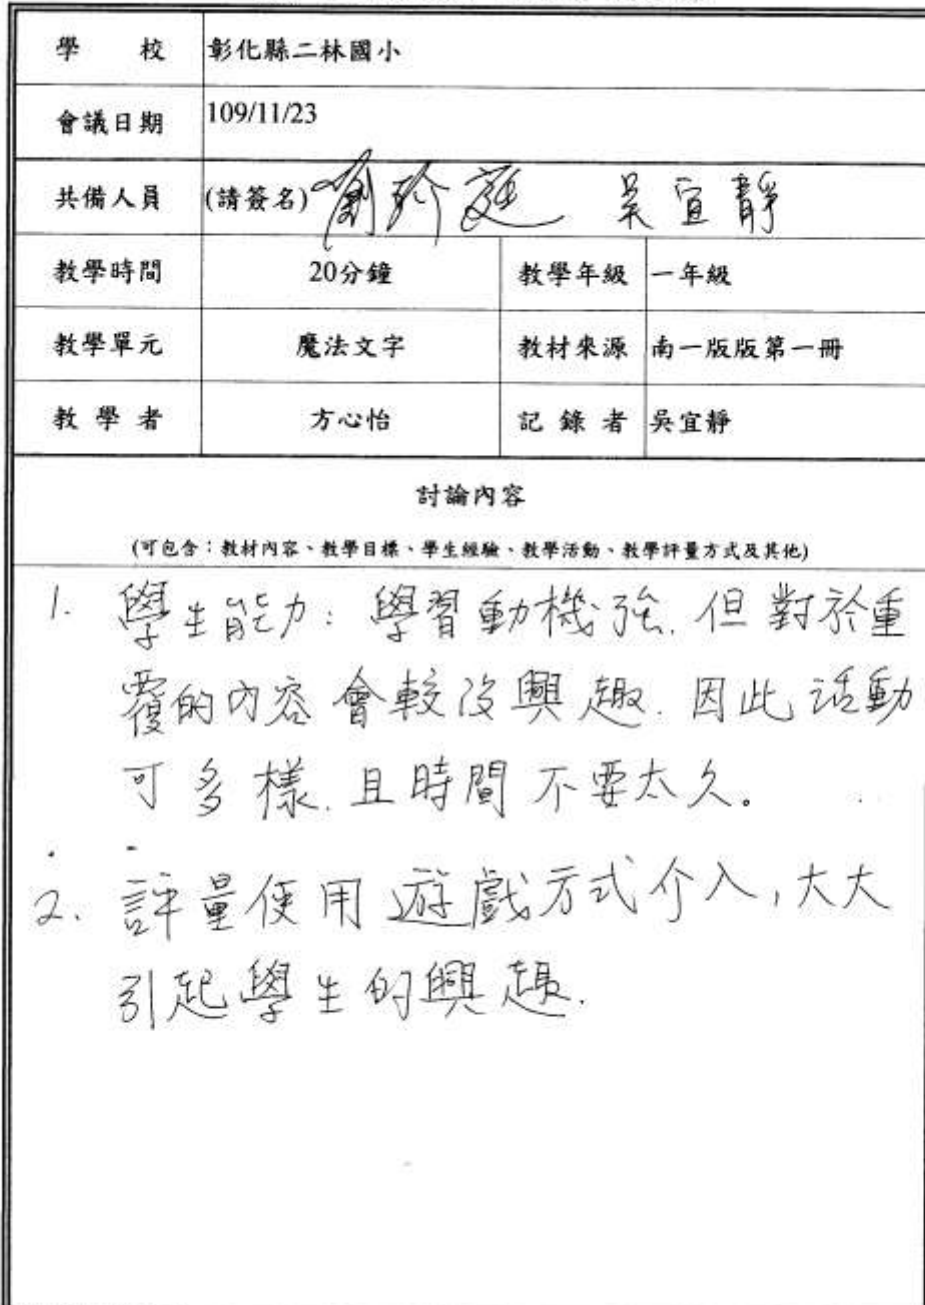 學 校 彰化縣二林國小
會議日期 109/11/23
共備人員 (請簽名) 吳宜靜
教學時間 20分鐘 教學年級 一年級
教學單元 魔法文字 教材來源 南一版版第一冊
教 學 者 方心怡 記 錄 者 吳宜靜
討論內容
(可包含：教材內容、教學目標、學生經驗、教學活動、教學評量方式及其他)
1. 學生能力：學習動機強. 但對於重
覆的內容會較沒興趣. 因此活動
可多樣. 且時間不要太久。
2. 評量使用遊戲方式介入，大大
引起學生的興趣.